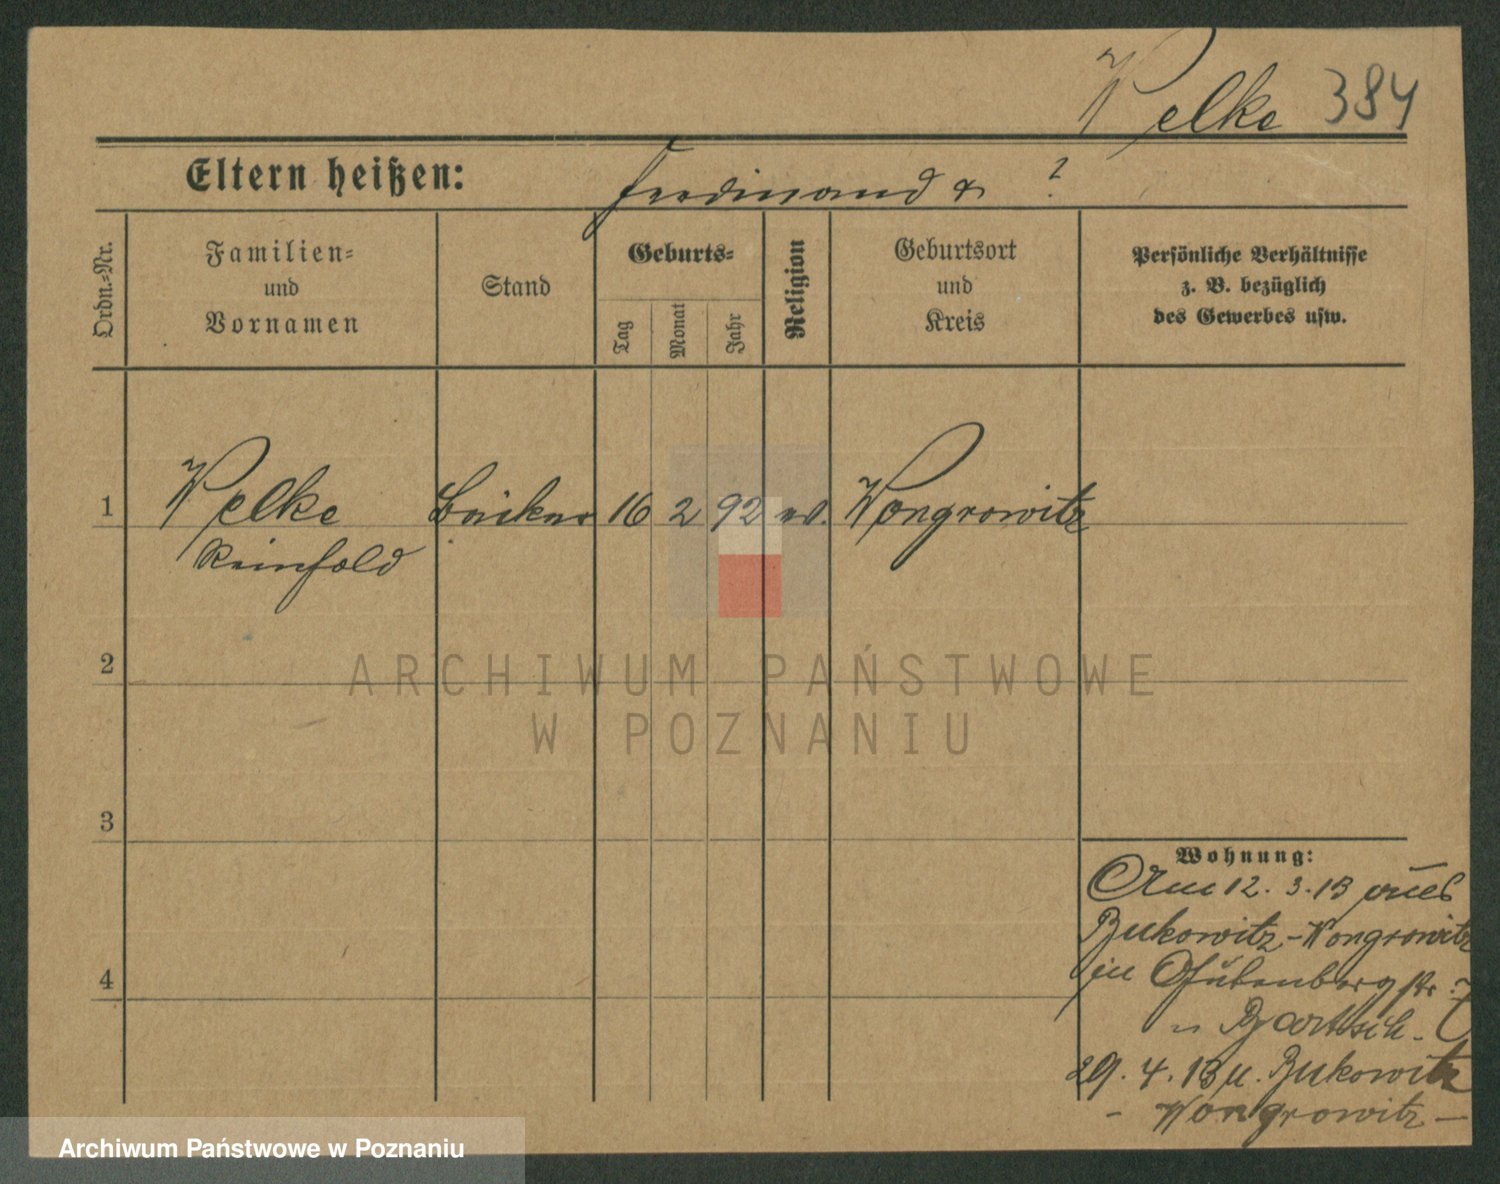 Welke 384
Eltern heißen: Ferdinand & ?
Ordn.-Nr.
Familien-
und
Vornamen
Stand
Geburts-
Tag
Monat
Jahr
Religion
Geburtsort
und
Kreis
Persönliche Verhältnisse
z. B. bezüglich
des Gewerbes usw.
1 Welke Bäcker 16 2 92 ev. Wongrowitz
Reinhold
2
ARCHIWUM PAŃSTWOWE
W POZNANIU
3
4
Wohnung:
Am 12. 3. 13 aus
Bukowitz - Wongrowitz
in
Bartsch.
29. 4. 13 n. Bukowitz
- Wongrowitz -
Archiwum Państwowe w Poznaniu